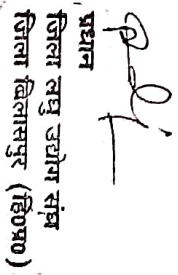 प्रधान
जिला लघु उद्योग संघ
जिला बिलासपुर (हि0प्र0)